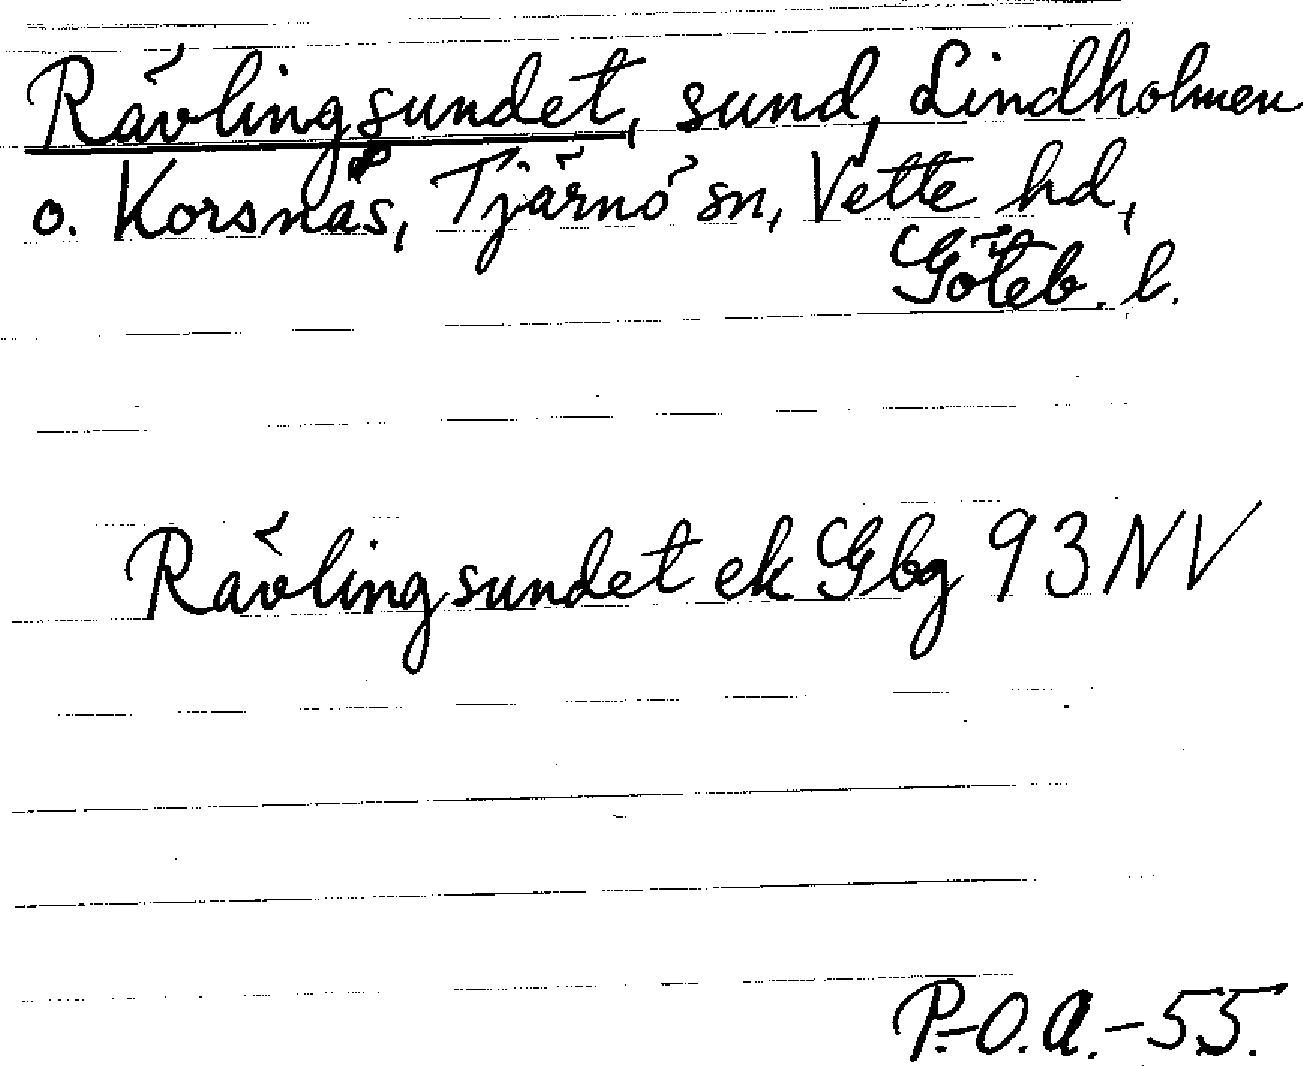 Rävlingsundet, sund, Lindholmen
o. Korsnäs, Tjärnö sn, Vette hd,
Göteb. l.
Rävlingsundet ek Gbg 93 NV
P.-O.A.-55.